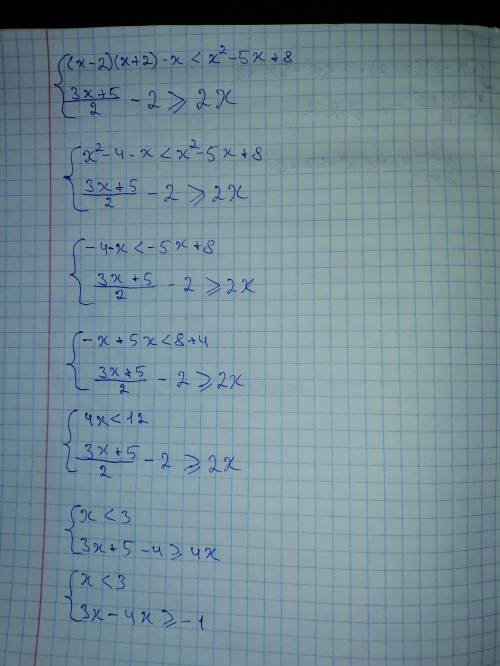 (x-2)(x+2)-x < x²-5x+8
3x+5/2 - 2 ⩾ 2x
x²-4-x < x²-5x+8
3x+5/2 - 2 ⩾ 2x
-4-x < -5x+8
3x+5/2 - 2 ⩾ 2x
-x+5x < 8+4
3x+5/2 - 2 ⩾ 2x
4x < 12
3x+5/2 - 2 ⩾ 2x
x < 3
3x+5-4 ⩾ 4x
x < 3
3x-4x ⩾ -1